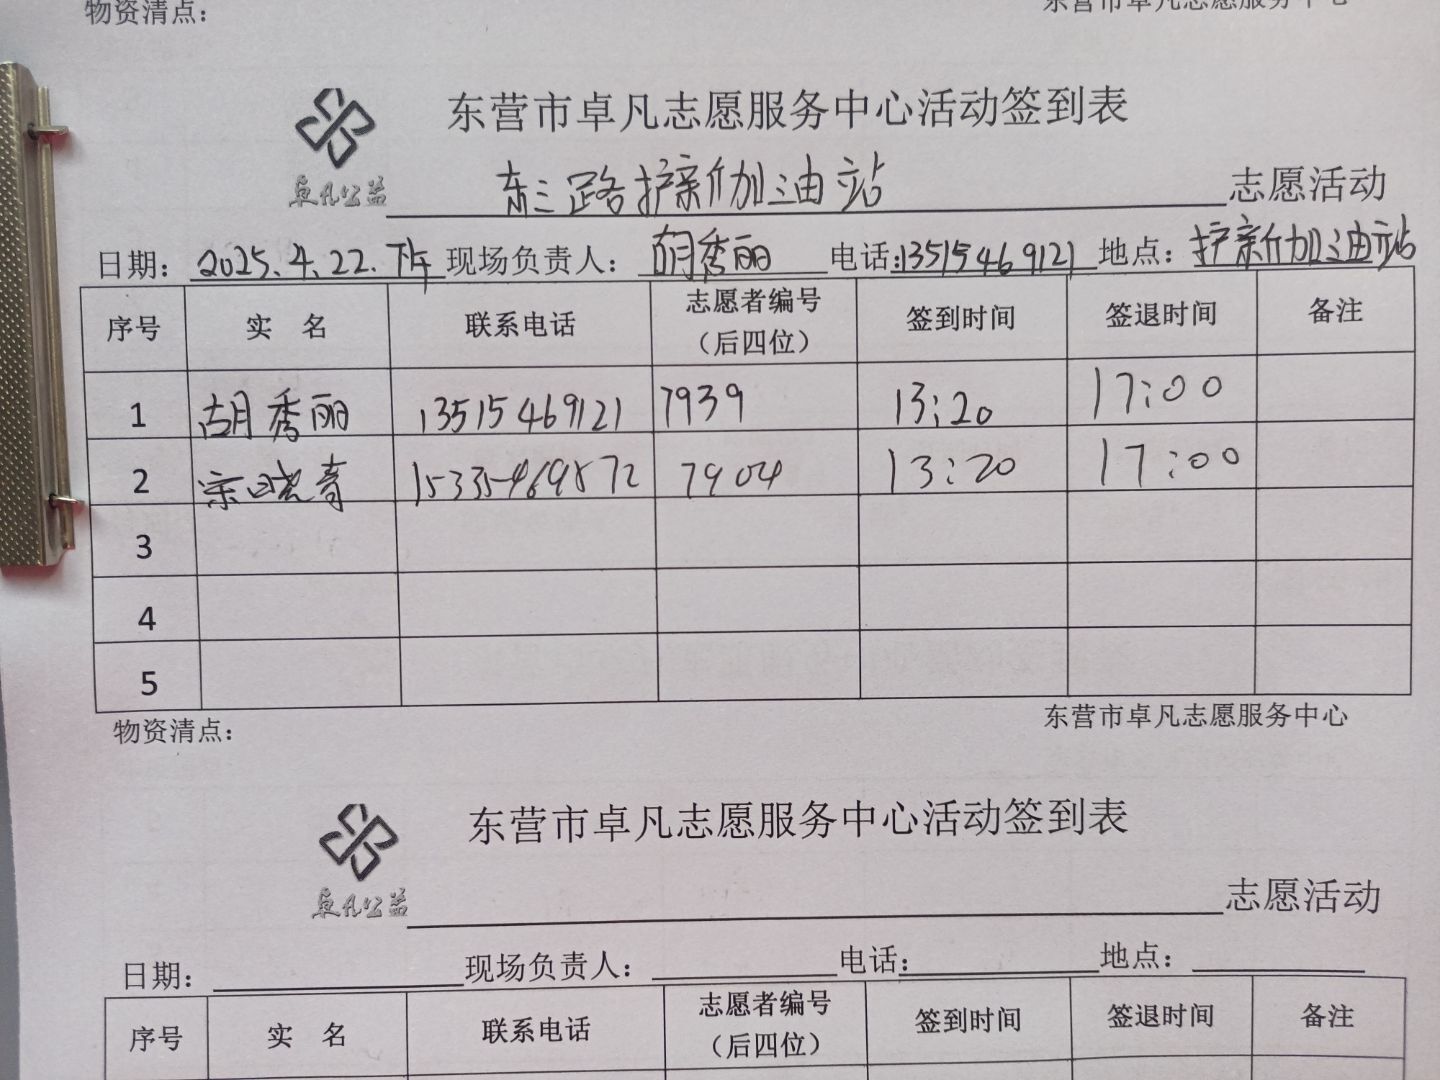 物资清点：
东营市卓凡志愿服务中心
东营市卓凡志愿服务中心活动签到表
卓凡公益
东三路护新加油站 志愿活动
日期：2025.4.22.下午 现场负责人：胡秀丽 电话:13515469121 地点：护新加油站
序号 实 名 联系电话 志愿者编号（后四位） 签到时间 签退时间 备注
1 胡秀丽 13515469121 7939 13:20 17:00
2 宗晓青 15335469872 7904 13:20 17:00
3
4
5
物资清点：
东营市卓凡志愿服务中心
东营市卓凡志愿服务中心活动签到表
卓凡公益
志愿活动
日期： 现场负责人： 电话： 地点：
序号 实 名 联系电话 志愿者编号（后四位） 签到时间 签退时间 备注